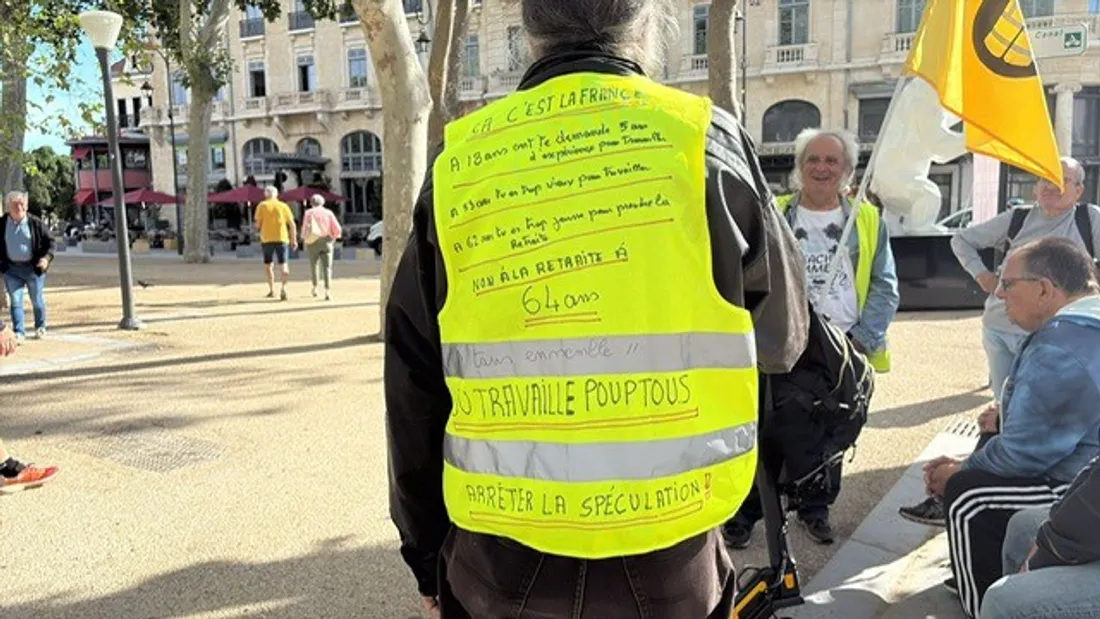 ÇA C'EST LA FRANCE
A 18 ans ont te demande 5 ans
d'expérience pour travailler
A 53 ans tu es trop vieux pour travailler
A 62 ans tu es trop jeune pour prendre la
Retraite
NON À LA RETRAITE À
64 ans
tous ensemble !!
DU TRAVAILLE POUR TOUS
ARRÊTER LA SPÉCULATION !
Canal